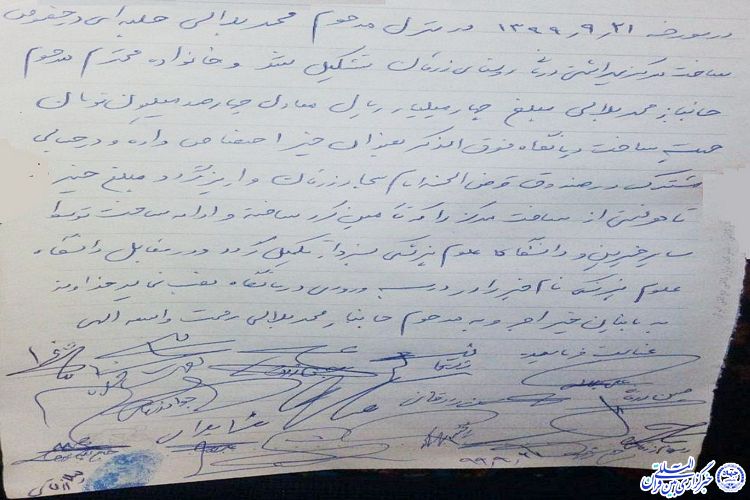 در مورخه ۱۳۹۹٫۹٫۲۱ در منزل مرحوم محمد بلالی جلسه ای در خصوص
ساخت مرکز بهداشتی درمانی روستای زرقان تشکیل شد و خانواده محترم مرحوم
جانباز محمد بلالی مبلغ چهار میلیارد ریال معادل چهارصد میلیون تومان
جهت ساخت درمانگاه فوق الذکر بعنوان خیر اختصاص داده و در حسابی
مشترک در صندوق قرض الحسنه امام سجاد زرقان واریز گردد مبلغ خیر
تا هر قسمتی از ساخت مرکز را که تامین کرد ساخته و ادامه ساخت توسط
سایر خیرین و دانشگاه علوم پزشکی سبزوار تکمیل گردد و در مقابل دانشگاه
علوم پزشکی نام خیر را در درب ورودی درمانگاه نصب نماید خداوند
به بانیان خیر اجر و به مرحوم جانباز محمد بلالی رحمت واسعه الهی
عنایت فرماید
۹۹٫۹٫۲۱
خبرگزاری بین المللی قرآن